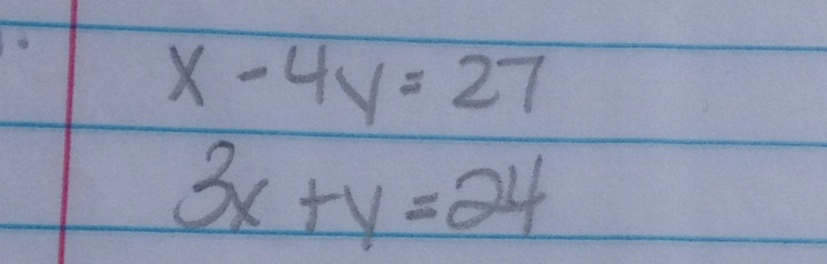 x - 4y = 27
3x + y = 24